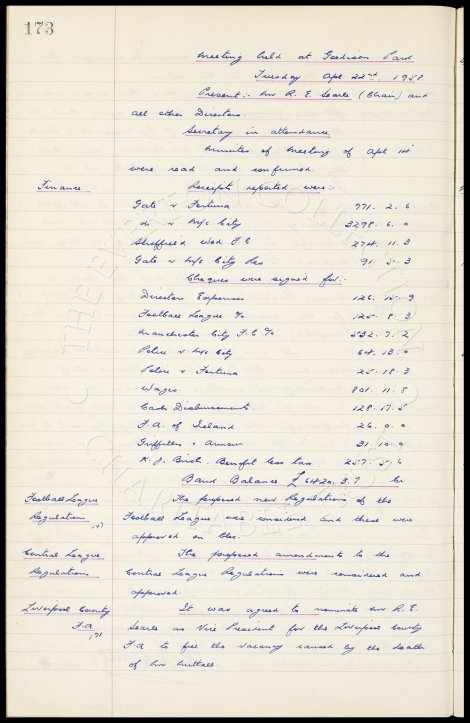 173
Meeting held at Goodison Park
Tuesday Apl 22nd, 1958
Present:- Mr R. E. Searle (Chair) and
all other Directors.
Secretary in attendance.
Minutes of Meeting of Apl 1st
were read and confirmed.
Finance Receipts reported were:-
Gate v Fortuna 771. 2. 6
do v M/c City 3298. 6. 0
Sheffield Wed F.C 274. 11. 3
Gate v M/c City Res 91. 5. 3
Cheques were signed for:-
Directors Expenses 126. 15. 9
Football League % 125. 8. 3
Manchester City F.C % 532. 7. 2
Police v M/c City 64. 13. 0
Police v Fortuna 25. 18. 3
Wages 801. 11. 8
Cash Disbursements 128. 17. 5
F.A. of Ireland 26. 0. 0
Griffiths & Armour 31. 10. 9
K. J. Birch. Benefit less tax 257. 5. 6
Bank Balance £6420. 3. 7
Football League The proposed new Regulations of the
Regulations Football League were considered and these were
approved en bloc.
Central League The proposed amendments to the
Regulations Central League Regulations were considered and
approved
Liverpool County It was agreed to nominate Mr R. E.
F.A Searle as Vice President for the Liverpool County
F.A to fill the vacancy caused by the death
of Mr Nuttall.
THE EVERTON COLLECTION
CHARITABLE